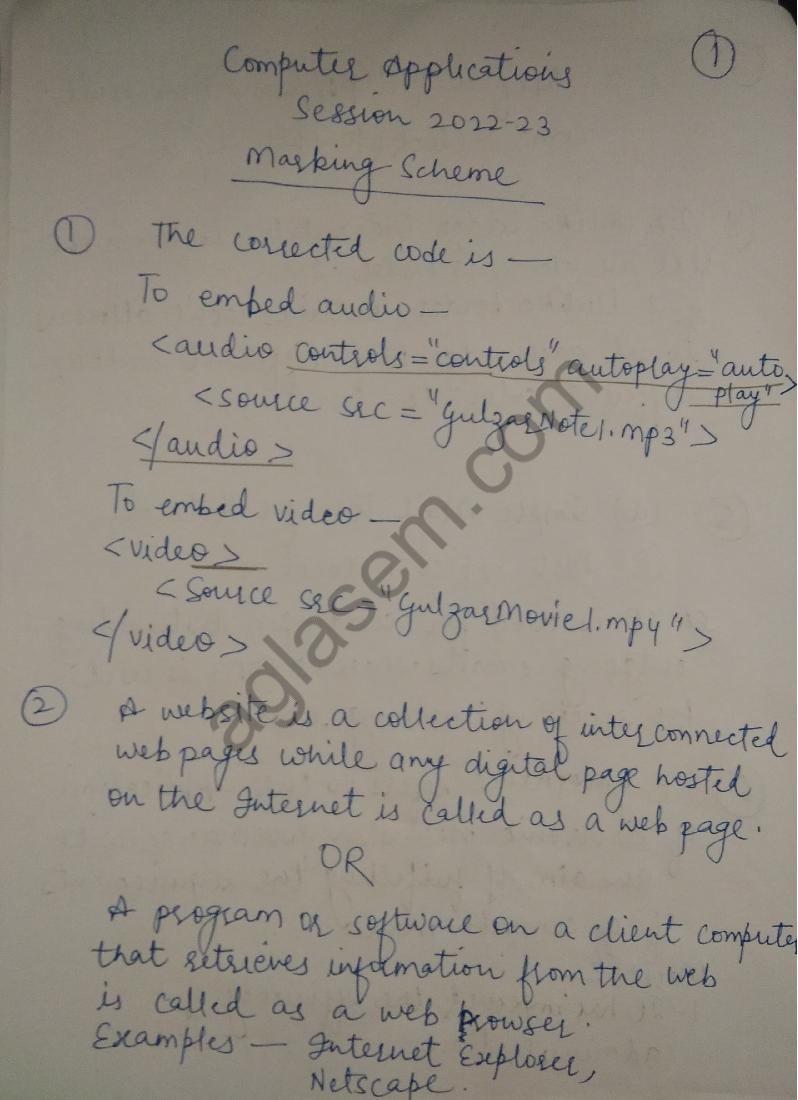 1
Computer Applications
Session 2022-23
Marking Scheme
1 The corrected code is —
To embed audio —
<audio controls="controls" autoplay="auto
play">
<source src="GulzarNote1.mp3">
</audio>
To embed video —
<video>
<source src="GulzarMovie1.mp4">
</video>
2 A website is a collection of interconnected
web pages while any digital page hosted
on the Internet is called as a web page.
OR
A program or software on a client computer
that retrieves information from the web
is called as a web browser.
Examples — Internet Explorer,
Netscape.
aglasem.com